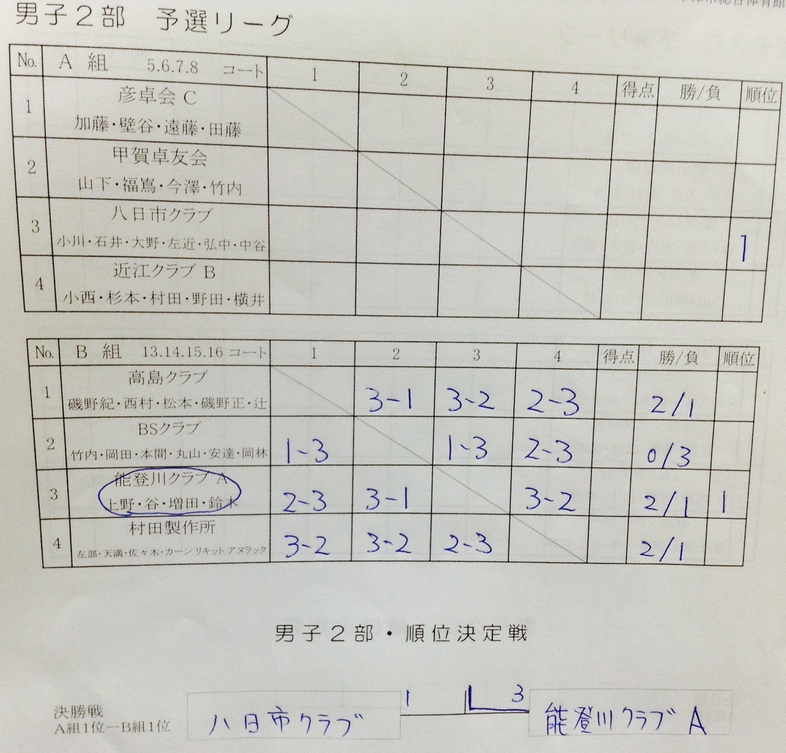 男子2部 予選リーグ
No. A 組 5.6.7.8 コート 1 2 3 4 得点 勝/負 順位
1 彦卓会 C
加藤・壁谷・遠藤・田藤
2 甲賀卓友会
山下・福嶌・今澤・竹内
3 八日市クラブ
小川・石井・大野・左近・弘中・中谷 1
4 近江クラブ B
小西・杉本・村田・野田・横井
No. B 組 13.14.15.16 コート 1 2 3 4 得点 勝/負 順位
1 高島クラブ
磯野紀・西村・松本・磯野正・辻 3-1 3-2 2-3 2/1
2 BSクラブ
竹内・岡田・本間・丸山・安達・岡林 1-3 1-3 2-3 0/3
3 能登川クラブ A
上野・谷・増田・鈴木 2-3 3-1 3-2 2/1 1
4 村田製作所
左部・天満・佐々木・カーン リキット アヌラック 3-2 3-2 2-3 2/1
男子2部・順位決定戦
決勝戦
A組1位ーB組1位 八日市クラブ 1 3 能登川クラブ A